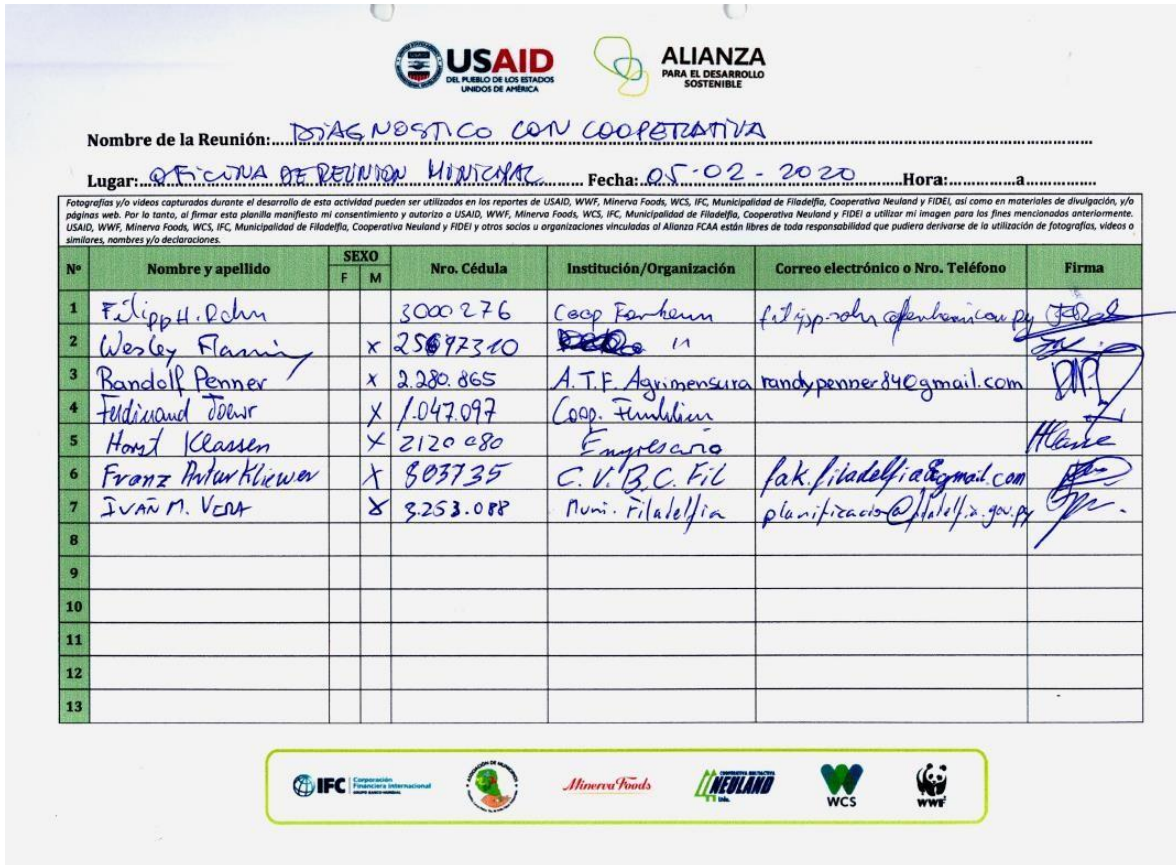 USAID
DEL PUEBLO DE LOS ESTADOS
UNIDOS DE AMÉRICA
ALIANZA
PARA EL DESARROLLO
SOSTENIBLE
Nombre de la Reunión: DIAGNOSTICO CON COOPERATIVA
Lugar: OFICINA DE REUNION MUNICIPAL Fecha: 05-02-2020 Hora: a
Fotografías y/o videos capturados durante el desarrollo de esta actividad pueden ser utilizados en los reportes de USAID, WWF, Minerva Foods, WCS, IFC, Municipalidad de Filadelfia, Cooperativa Neuland y FIDEI, así como en materiales de divulgación, y/o
páginas web. Por lo tanto, al firmar esta planilla manifiesto mi consentimiento y autorizo a USAID, WWF, Minerva Foods, WCS, IFC, Municipalidad de Filadelfia, Cooperativa Neuland y FIDEI a utilizar mi imagen para los fines mencionados anteriormente.
USAID, WWF, Minerva Foods, WCS, IFC, Municipalidad de Filadelfia, Cooperativa Neuland y FIDEI y otros socios u organizaciones vinculadas al Alianza FCAA están libres de toda responsabilidad que pudiera derivarse de la utilización de fotografías, videos o
similares, nombres y/o declaraciones.
Nº Nombre y apellido SEXO F M Nro. Cédula Institución/Organización Correo electrónico o Nro. Teléfono Firma
1 Filipp H. 3000276 Coop
2 Wesley x
3 Randolf Penner x 2.280.865 A.T.F. Agrimensura randypenner84@gmail.com
4 Ferdinand x 1.047.097 Coop.
5 Horst Klassen x 2120080 Empresario
6 Franz Artur Kliewer x 803735 C.V.B.C. Fil fak.filadelfia@gmail.com
7 IVAÑ M. VERA x 3.253.088 Muni. Filadelfia planificacion@filadelfia.gov.py
8
9
10
11
12
13
IFC Corporación
Financiera Internacional
GRUPO BANCO MUNDIAL
ASOCIACIÓN DE MUNICIPIOS
Minerva Foods
COOPERATIVA MULTIACTIVA
NEULAND
Ltda.
WCS
WWF